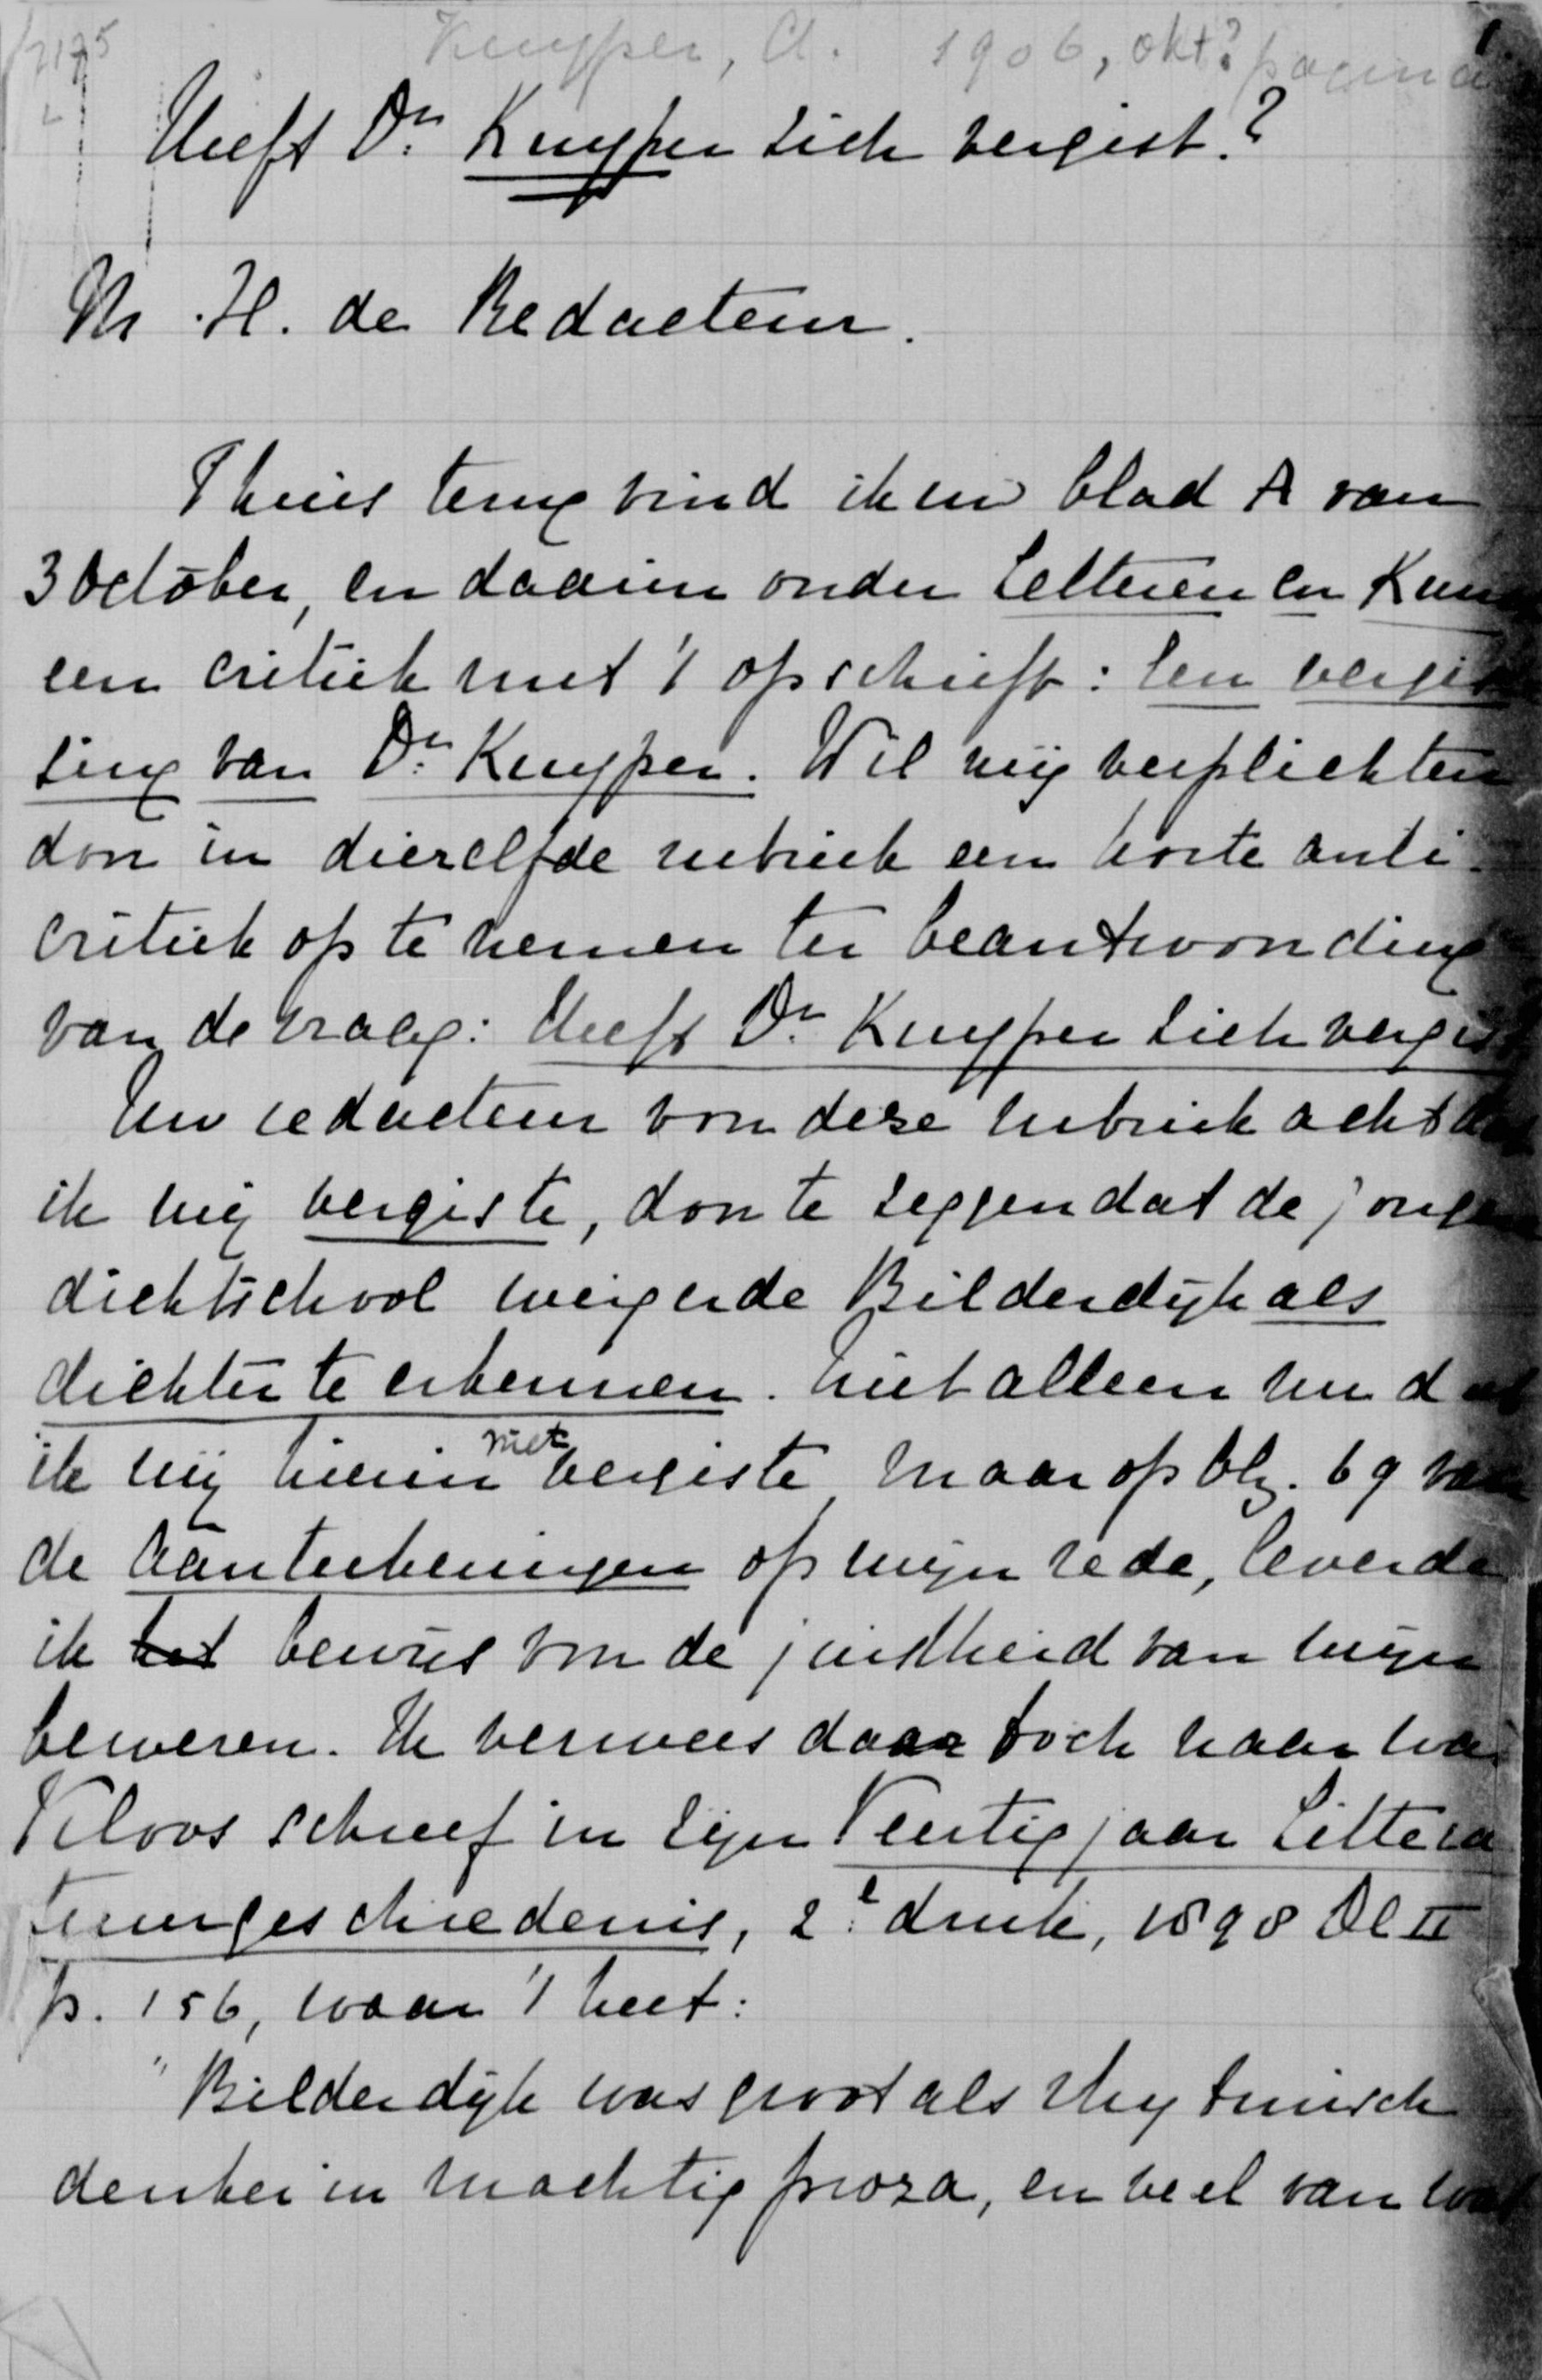 7195
Kuyper, A. 1906, okt? pagina
1.
Heeft Dr. Kuyper zich vergist?
M. H. de Redacteur.
Thuis terug vind ik uw blad A van
3 October, en daarin onder Letteren en Kunst
een critiek met 't opschrift: Een vergis
sing van Dr. Kuyper. Wil mij verplichten
door in diezelfde rubriek een korte anti-
critiek op te nemen ter beantwoording
van de vraag: Heeft Dr. Kuyper zich vergist
Uw redacteur voor deze rubriek acht dat
ik mij vergiste, door te zeggen dat de jongere
dichtschool weigerde Bilderdijk als
dichter te erkennen. Niet alleen nu dat
ik mij hierin niet vergiste, maar op blz. 69 van
de Aanteekeningen op mijn rede, leverde
ik het bewijs voor de juistheid van mijn
beweren. Ik verwees daar toch naar wat
Kloos schreef in zijn Veertig jaar Littera
tuurgeschiedenis, 2e druk, 1898 Dl II
p. 156, waar 't heet:
"Bilderdijk was groot als rhytmisch
denker in machtig proza, en veel van wat